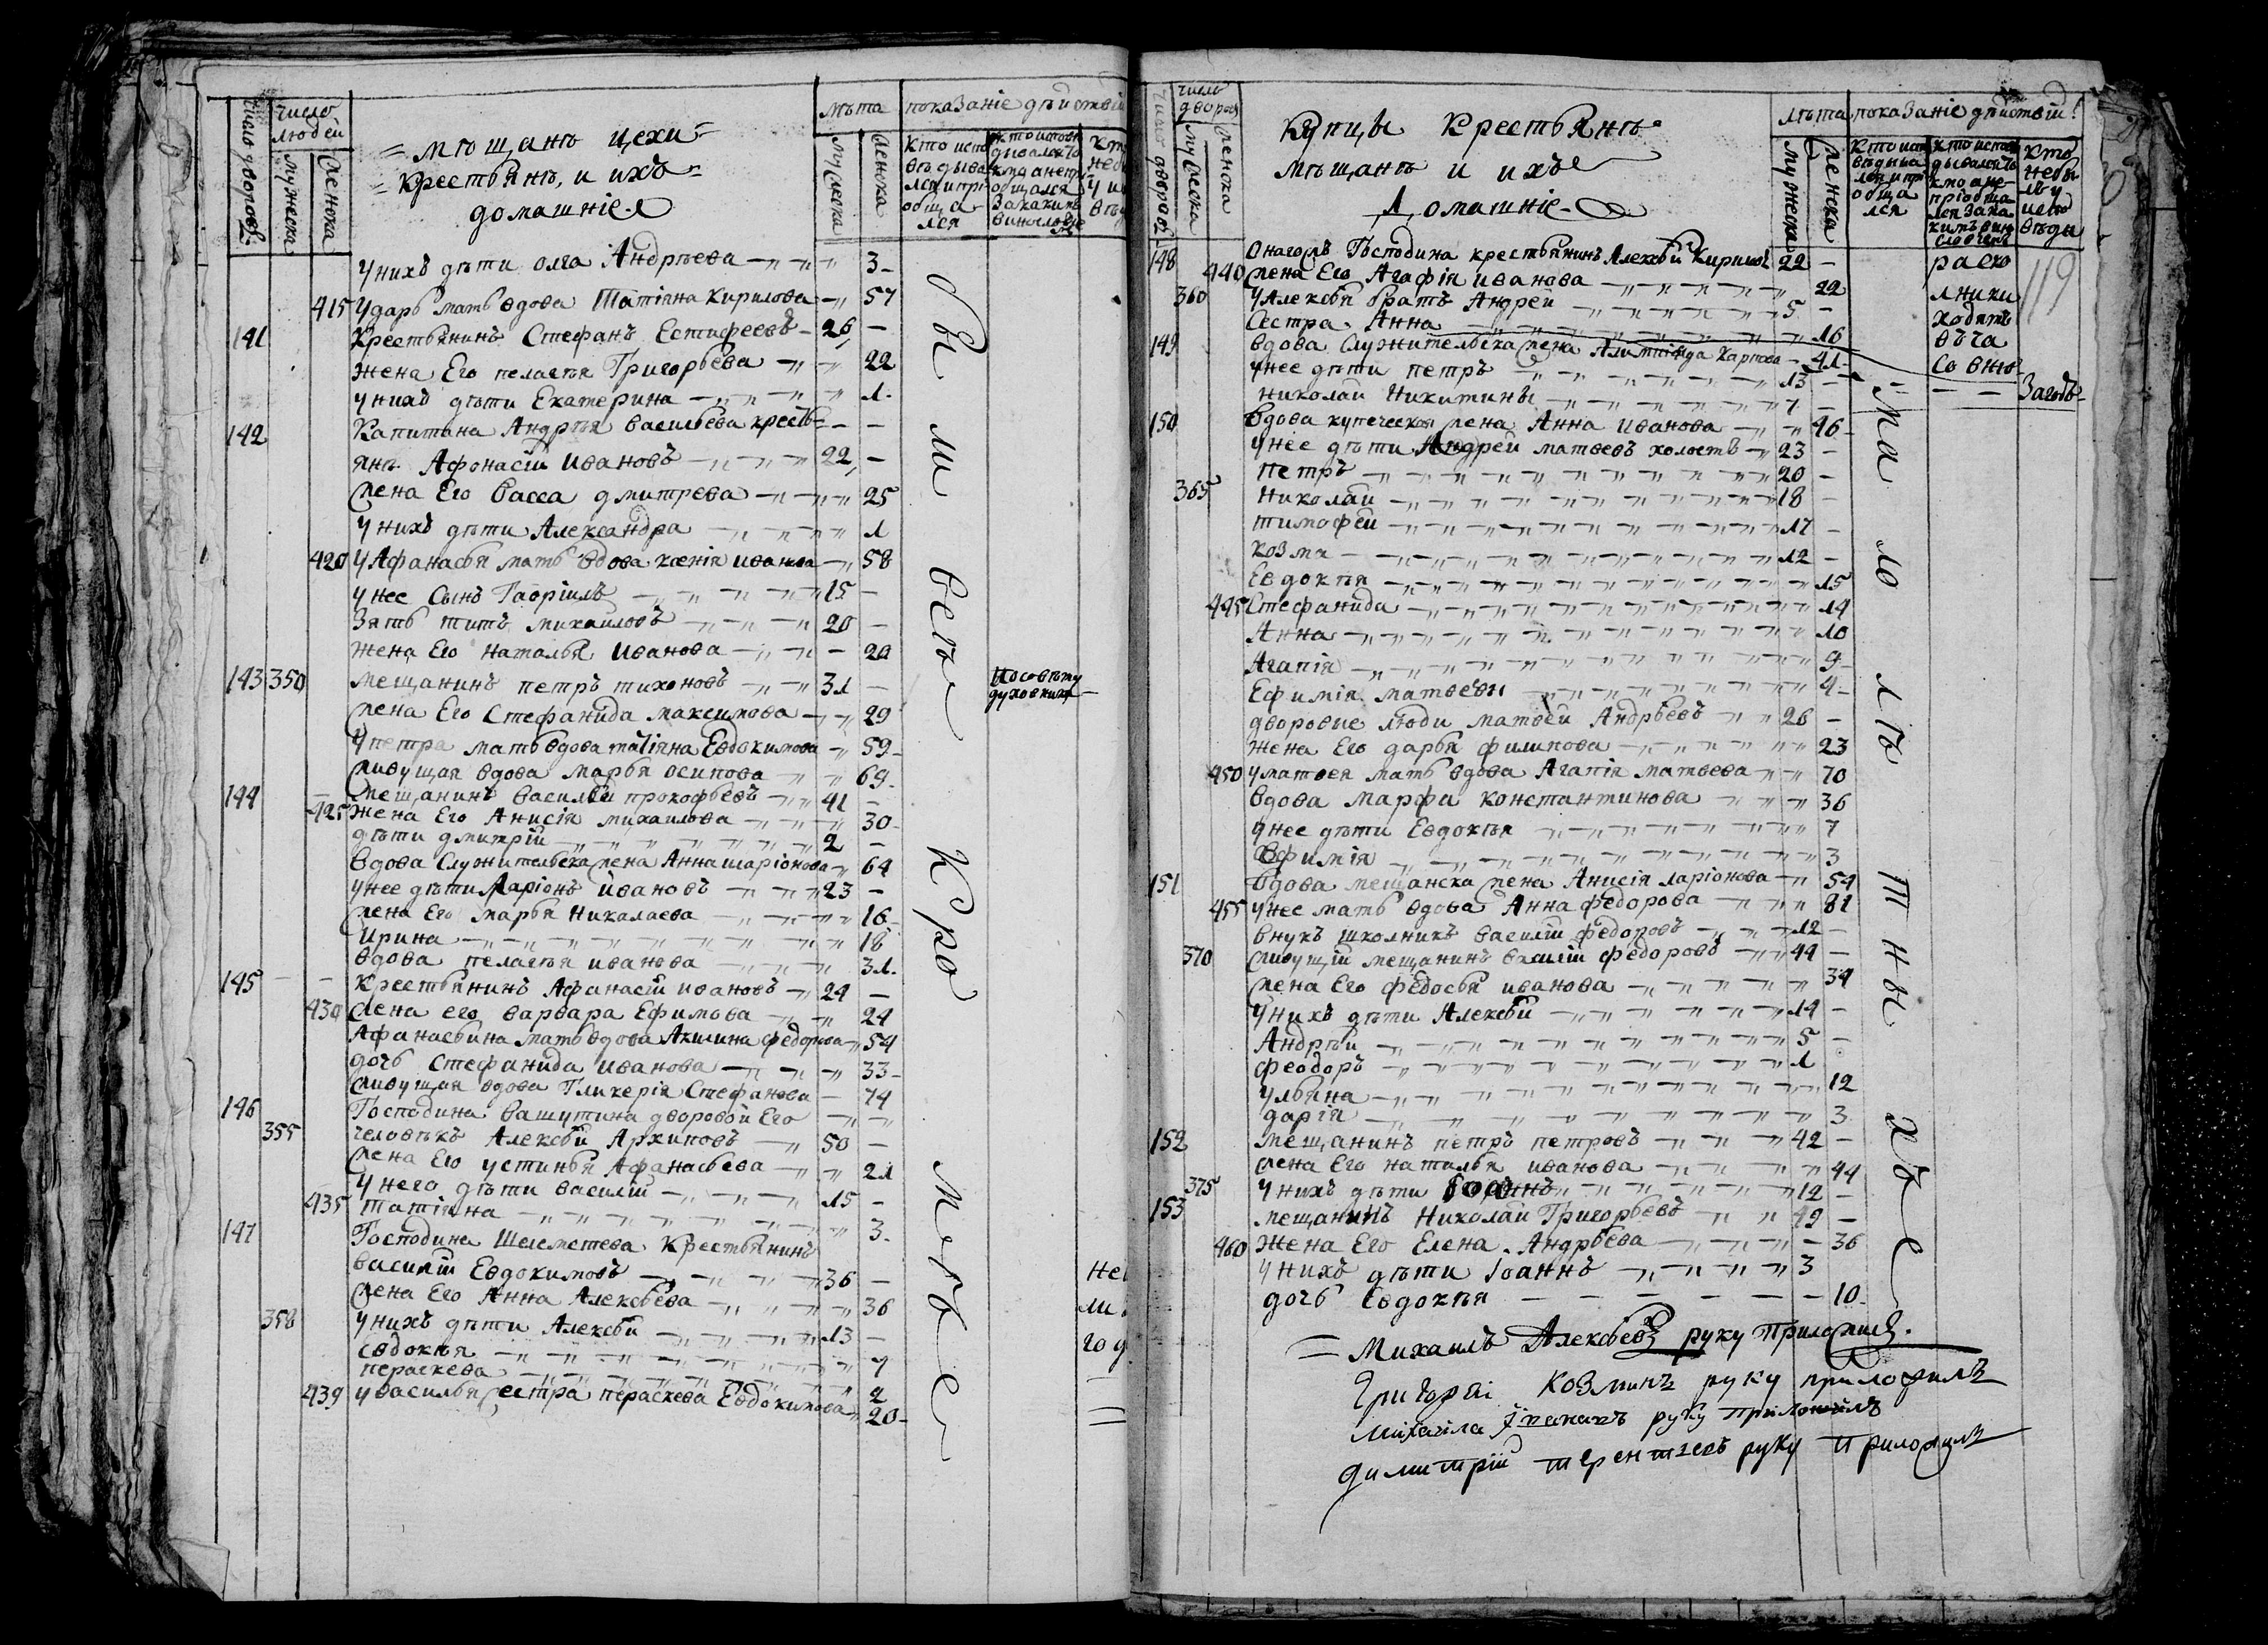 число дворовъ
число людей
мужеска
женска
= мѣщанъ цехи =
= крестьянъ, и ихъ =
домашніе
лѣта
мужеска
женска
показаніе дѣйствій
кто испо
вѣдыва
лся и прі
обща
лся
у нихъ дѣти олга Андрѣева 3
415 У дарь мать вдова Татіана Кирилова 57
141 Крестьянинъ Стефанъ Естифеевъ 26
жена Его пелагѣя Григорьева 22
у нихъ дѣти Екатерина 1
142 Капитана Андрѣя васильева кресть=
янъ Афонасіи Ивановъ 22
жена Его Васса дмитрева 25
у нихъ дѣти Александра 1
420 У Афанасья мать вдова ксенія иванова 58
у нее Сынъ Гавріилъ 15
Зять титъ михаиловъ 20
жена Его Наталья Иванова 20
143 350 мещанинъ петръ тихоновъ 31
По совѣту
духовника
жена Его Стефанида максимова 29
У петра мать вдова татіяна Евдокимова 59
живущая вдова Марья осипова 69
144 мещанинъ василей прокофьевъ 41
425 жена Его Анисія михаилова 30
дѣти дмитрій 2
вдова Служительска жена Анна иларіонова 64
у нее дѣти Ларіонъ Ивановъ 23
жена Его марья Николаева 16
Ирина 18
вдова пелагѣя иванова 31
145 Крестьянинъ Афанасій ивановъ 24
430 жена его варвара Ефимова 24
Афанасьина мать вдова Акилина федорова 54
дочь Стефанида Иванова 33
живущая вдова Гликерія Стефанова 74
146 Господина Вашутина дворовой Его
355 человѣкъ Алексѣй Архиповъ 50
жена Его устинья Афанасьева 21
У него дѣти василій 15
435 татіяна 3
147 Господина Шегеметева Крестьянинъ
василій Евдокимовъ 36
жена Его Анна Алексѣева 36
358 У нихъ дѣти Алексѣй 13
Евдокѣя 7
пераскева 2
439 у василья сестра пераскева Евдокимова 20
бы ли всѣ Кро мѣ
число дворовъ
мужеска
женска
Купцы Крестьянъ
мѣщанъ и ихъ
Домашніе
лѣта показаніе дѣйствій
мужеска
женска
119
148 Онагожъ Господина крестьянинъ Алексѣй Кирилов 22
440 жена Его Агафія иванова 22
360 У Алексѣя братъ Андрей 5
Сестра Анна 16
раско
лники
ходятъ
въ ча
совню
149 вдова Служительска жена Алимпіяда Карпова 41
у нее дѣти петръ 13
николаи Никитины 7
150 Вдова купеческая жена Анна Иванова 46
у нее дѣти Андрей матвеевъ холостъ 23
петръ 20
365 Николай 18
тимофей 17
козма 12
Евдокѣя 15
445 Стефанида 14
Анна 10
Агапія 9
Ефимія матвѣвы 4
дворовые люди матвей Андрѣевъ 26
жена Его дарья филипова 23
450 у матвея мать вдова Агапія матвеева 70
вдова Марфа константинова 36
у нее дѣти Евдокѣя 7
Ефимія 3
151 Вдова мещанска жена Анисія ларіонова 54
455 У нее мать вдова Анна Федорова 81
внукъ школникъ василіи федоровъ 12
370 живущій мещанинъ василій федоровъ 44
жена Его федосья иванова 34
У нихъ дѣти Алексѣй 14
Андрѣй 5
феодоръ 1
ульяна 12
дарія 3
152 мещанинъ петръ петровъ 42
жена Его наталья иванова 44
375 у нихъ дѣти Іоаннъ 12
153 мещанинъ Николай Григорьевъ 49
460 жена Его Елена Андрѣева 36
У нихъ дѣти Іоаннъ 3
дочь Евдокѣя 10
ма ло лѣ т ны хъ
= Михаилъ Алексѣевъ руку приложилъ.
Григореі Козминъ руку приложилъ
михаила руку приложилъ
димитрій терентьевъ руку приложилъ